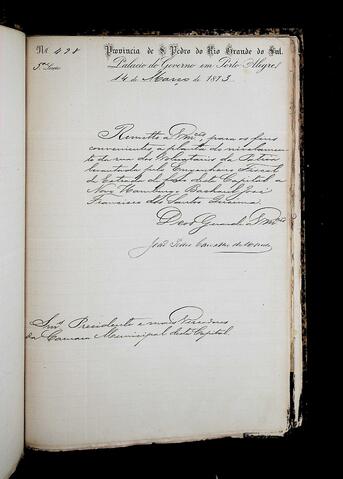 Nº 428 Provincia de S. Pedro do Rio Grande do Sul.
5ª Secção Palacio do Governo em Porto Alegre,
14 de Março de 1873.
Remetto a Vmcês, para os fins
convenientes a planta do nivelamen-
to da rua dos Voluntarios da Patria
levantada pelo Engenheiro Fiscal
da Estrada de ferro desta Capital a
Novo Hamburgo Bacharel José
Francisco dos Santos
Deos Guarde a Vmcês
João Pedro Carvalho de Moraes
Snrs Presidente e mais Vereadores
da Camara Municipal desta Capital.